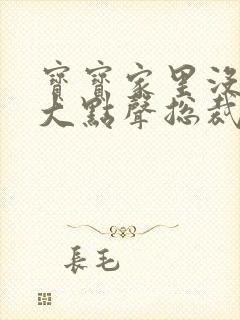 寶寶家里沒
大點聲總裁
長毛